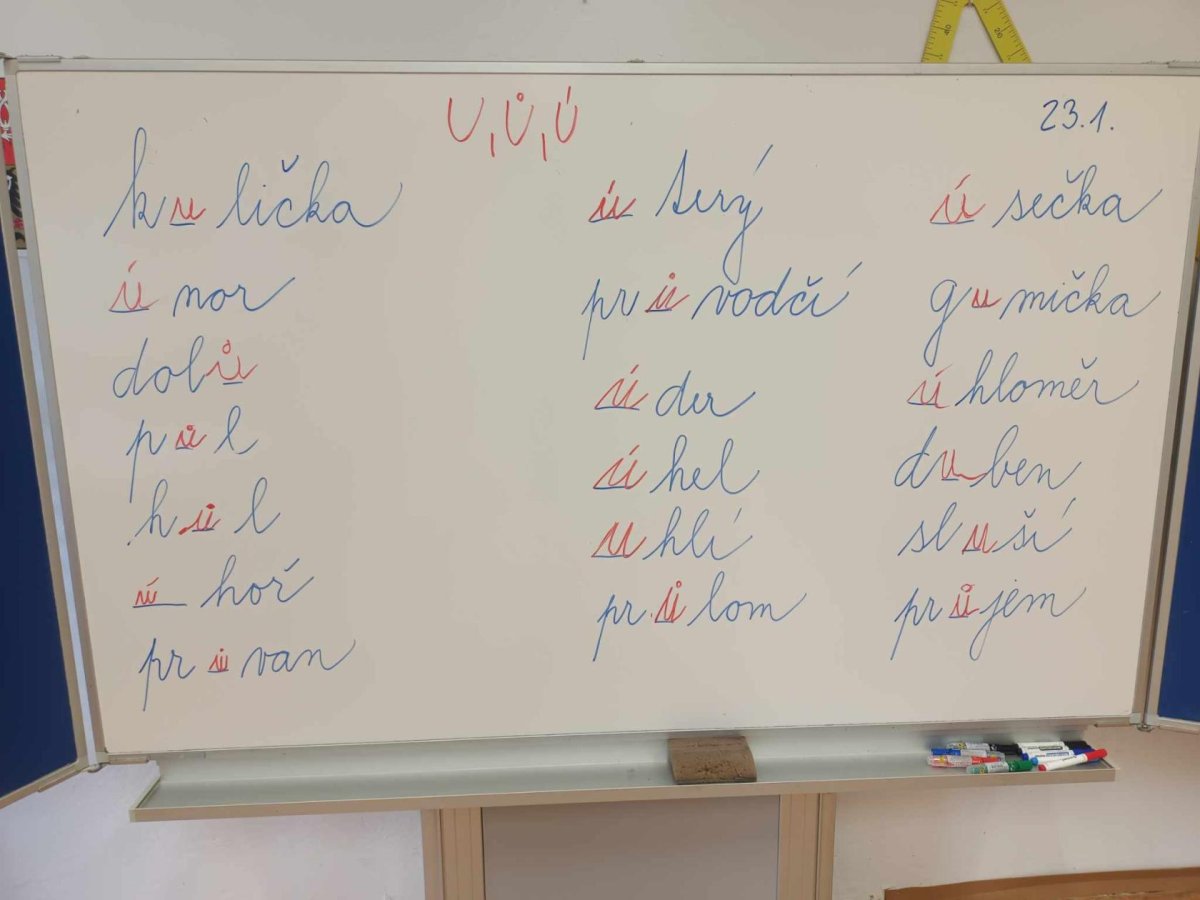 U, Ů, Ú
23.1.
kulička
únor
dolů
půl
hůl
úhoř
průvan
úterý
průvodčí
úder
úhel
uhlí
průlom
úsečka
gumička
úhloměr
duben
sluší
průjem